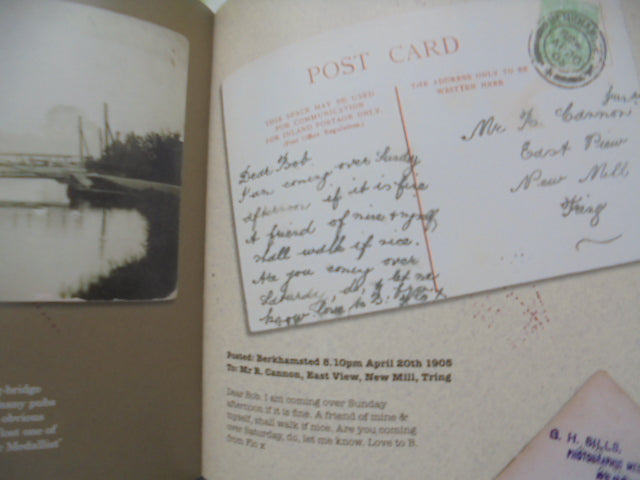 POST CARD
THIS SPACE MAY BE USED
FOR COMMUNICATION
FOR INLAND POSTAGE ONLY.
(Post Office Regulation.)
THE ADDRESS ONLY TO BE
WRITTEN HERE
Dear Bob.
I am coming over Sunday
afternoon if it is fine
A friend of mine & myself
shall walk if nice.
Are you coming over
Saturday, do, let me
know. Love to B.
Mr R. Cannon
East View
New Mill
Tring
Posted: Berkhamsted 5.10pm April 20th 1905
To: Mr R. Cannon, East View, New Mill, Tring
Dear Bob. I am coming over Sunday
afternoon if it is fine. A friend of mine &
myself, shall walk if nice. Are you coming
over Saturday, do, let me know. Love to B.
from Flo x
bridge
many pubs
obvious
lost one of
Medallist'
G. H. SILLS,
PHOTOGRAPHIC